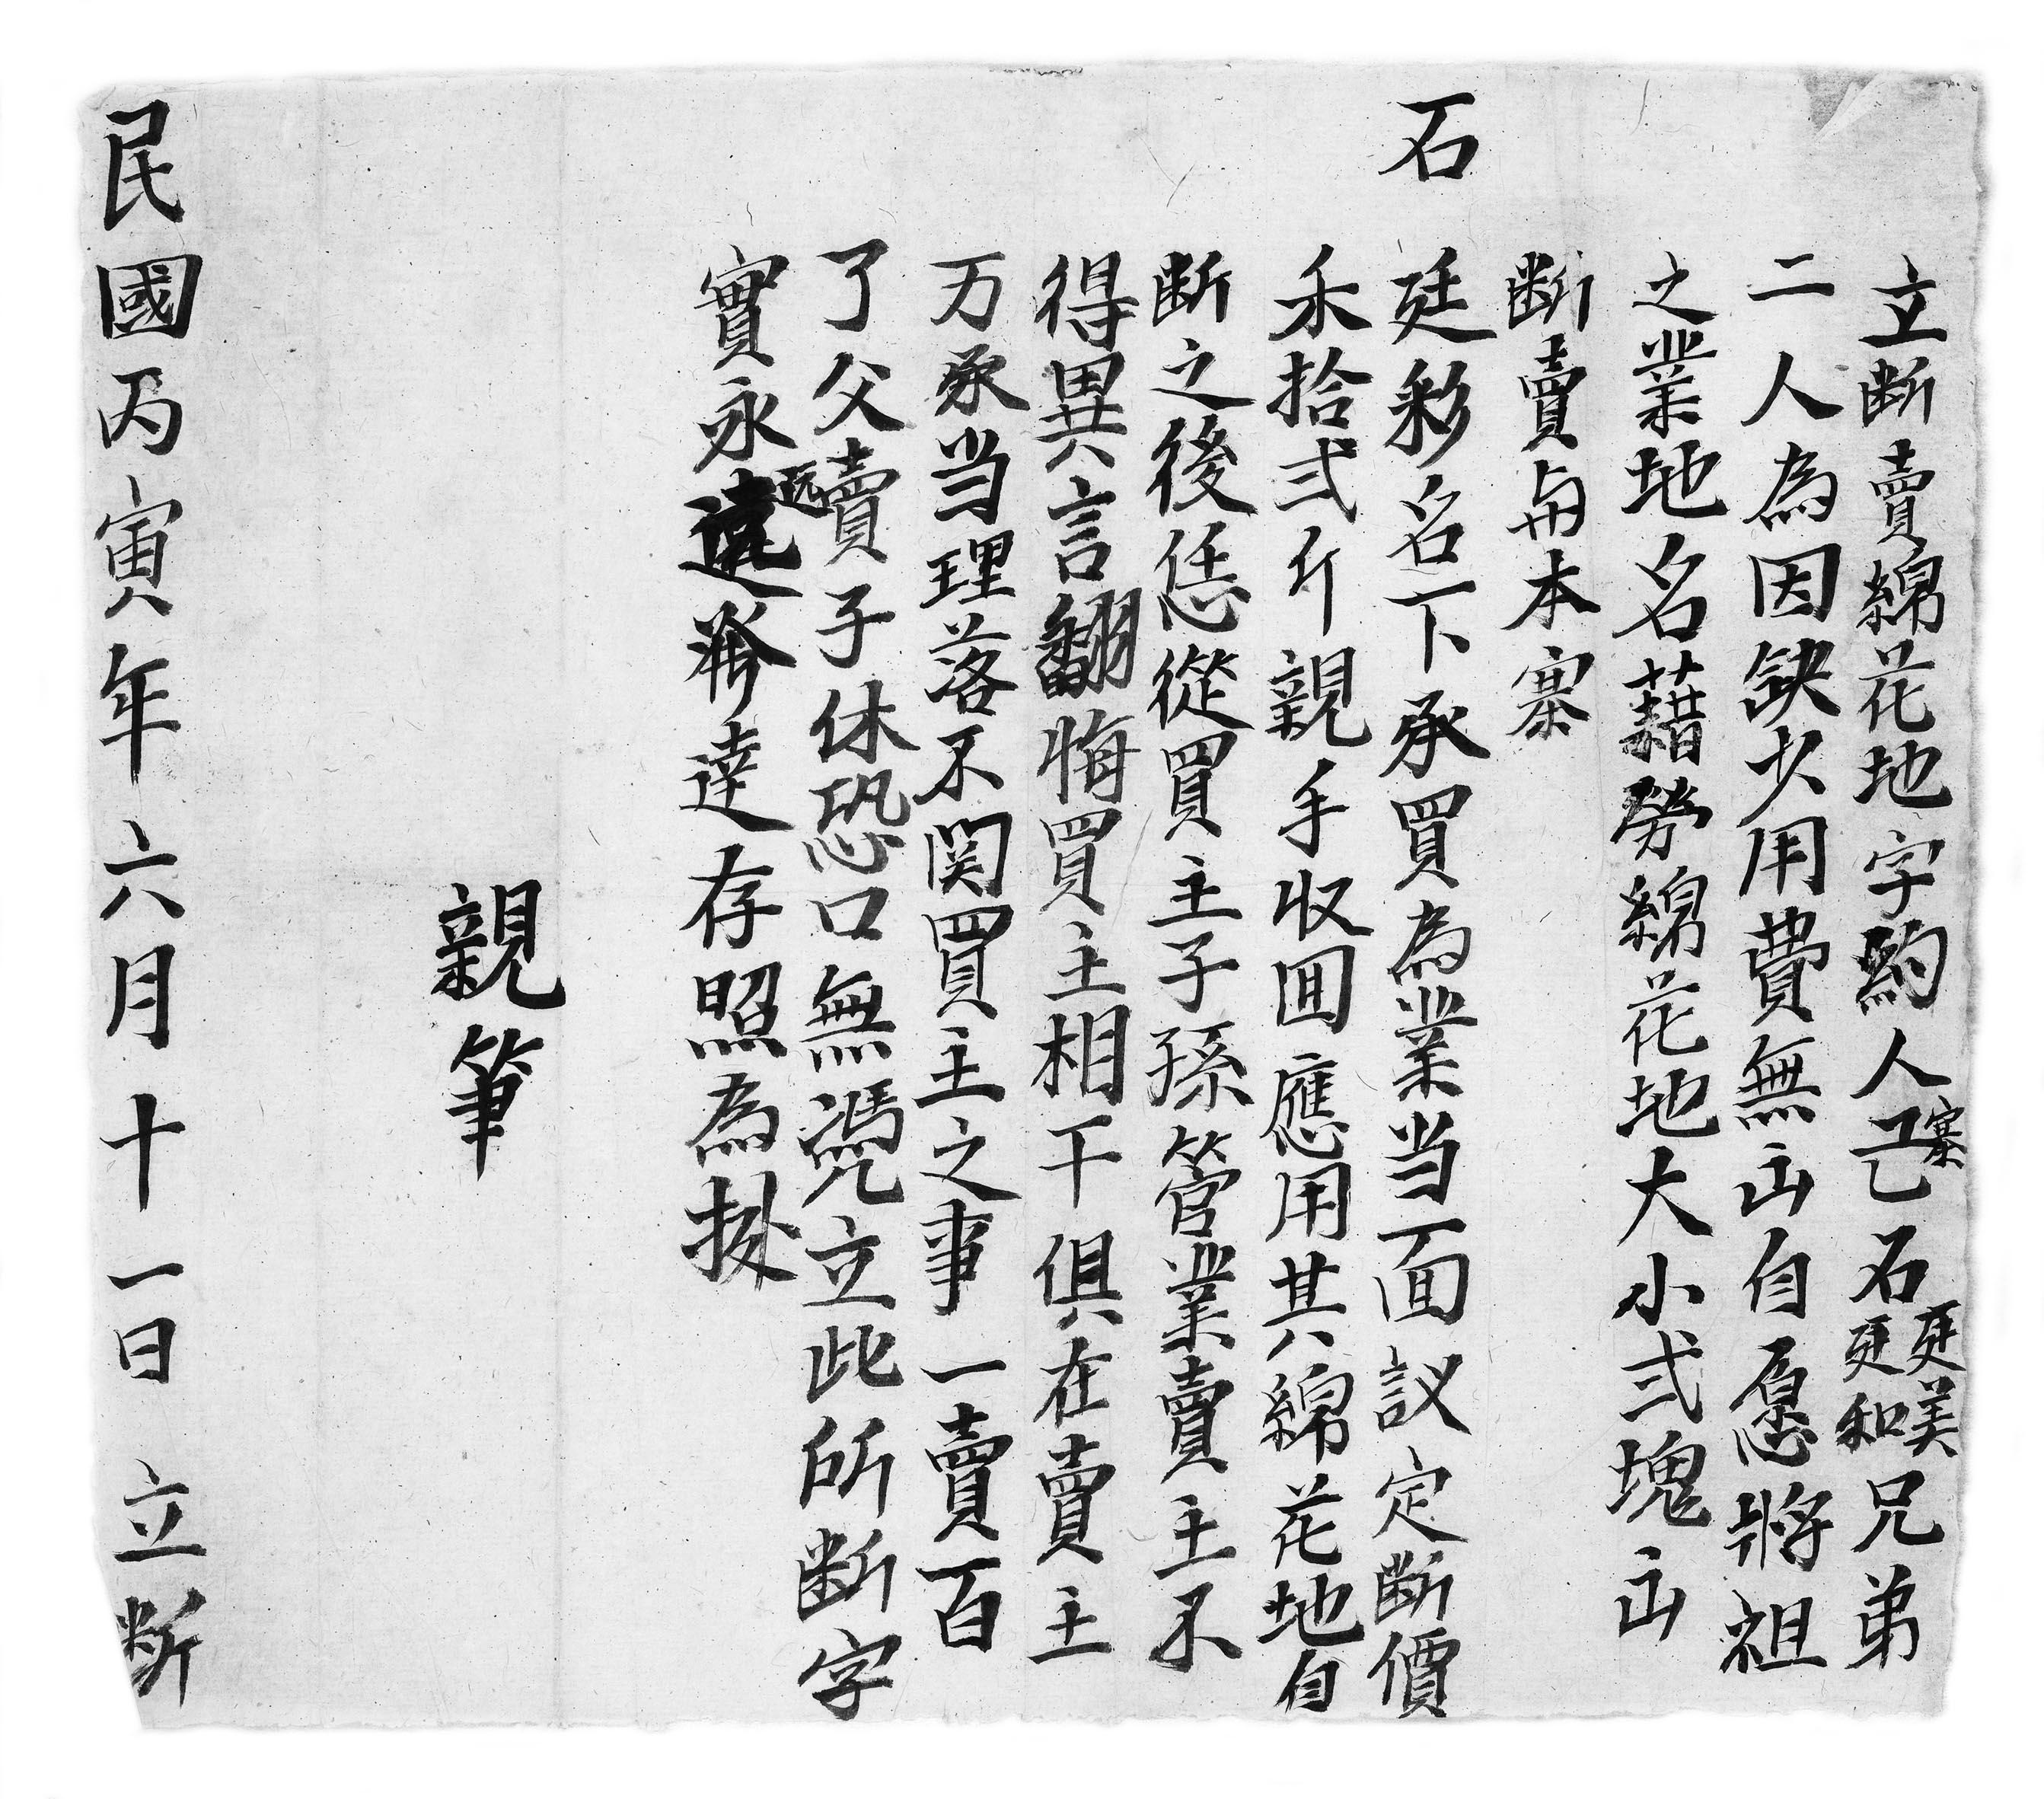 立断賣綿花地字約人己寨石廷美廷和兄弟
二人為因缺少用費無出自愿將祖
之業地名藉勞綿花地大小弍塊出
断賣与本寨
石廷彩名下承買為業当面議定断價
禾拾弍斤親手収囬應用其綿花地自
断之後恁從買主子孫管業賣主不
得異言翻悔買主相干俱在賣主
万承当理落不関買主之事一賣百
了父賣子休恐口無憑立此所断字
實永遠远發達存照為拠
親筆
民國丙寅年六月十一日立断